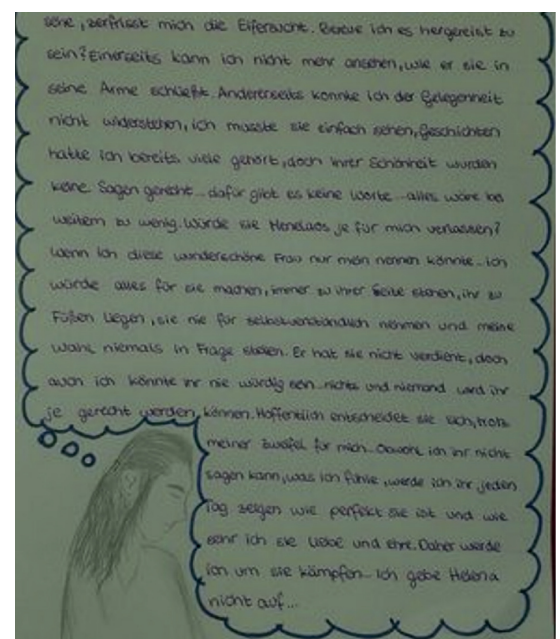 sehe, zerfrisst mich die Eifersucht. Bereue ich es hergereist zu
sein? Einerseits kann ich nicht mehr ansehen, wie er sie in
seine Arme schließt. Andererseits konnte ich der Gelegenheit
nicht widerstehen, ich musste sie einfach sehen, Geschichten
hatte ich bereits viele gehört, doch ihrer Schönheit wurden
keine Sagen gerecht... dafür gibt es keine Worte... alles wäre bei
weitem zu wenig. Würde sie Menelaos je für mich verlassen?
Wenn ich diese wunderschöne Frau nur mein nennen könnte... ich
würde alles für sie machen, immer zu ihrer Seite stehen, ihr zu
Füßen liegen, sie nie für selbstverständlich nehmen und meine
Wahl niemals in Frage stellen. Er hat sie nicht verdient, doch
auch ich könnte ihr nie würdig sein... nichts und niemand wird ihr
je gerecht werden können. Hoffentlich entscheidet sie sich, trotz
meiner Zweifel für mich. Obwohl ich ihr nicht
sagen kann, was ich fühle, werde ich ihr jeden
Tag zeigen wie perfekt sie ist und wie
sehr ich sie liebe und ehre. Daher werde
ich um sie kämpfen... Ich gebe Helena
nicht auf...